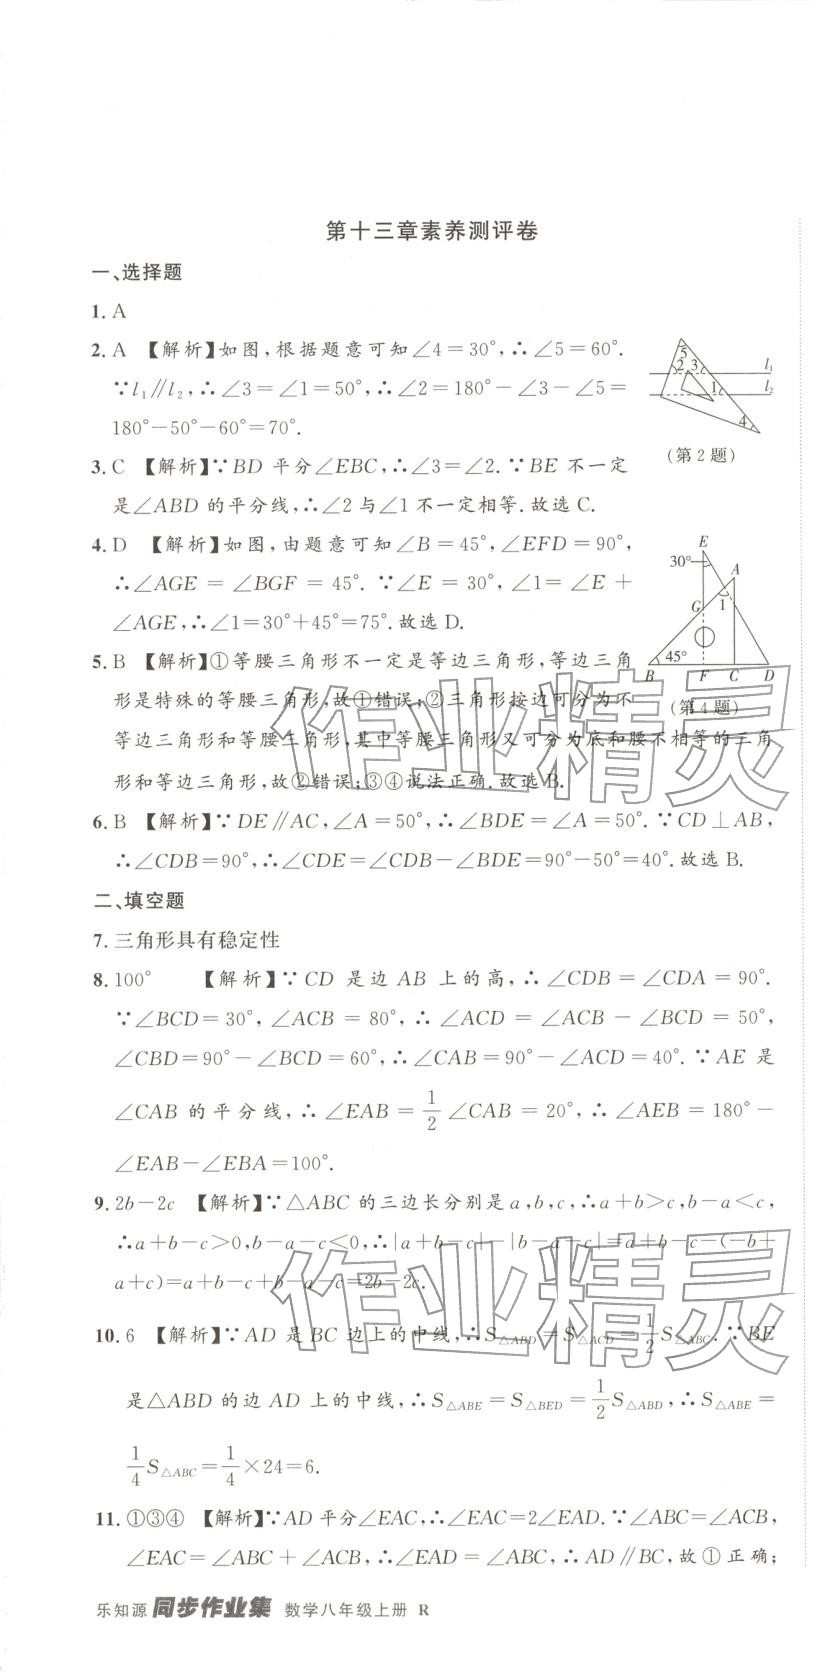 第十三章素养测评卷
一、选择题
1. A
2. A 【解析】如图,根据题意可知∠4=30°,∴∠5=60°.
∵l₁∥l₂,∴∠3=∠1=50°,∴∠2=180°-∠3-∠5=
180°-50°-60°=70°.
5
2 3
1
4
l₁
l₂
(第2题)
3. C 【解析】∵BD 平分∠EBC,∴∠3=∠2.∵BE 不一定
是∠ABD 的平分线,∴∠2与∠1不一定相等.故选C.
4. D 【解析】如图,由题意可知∠B=45°,∠EFD=90°,
∴∠AGE=∠BGF=45°.∵∠E=30°,∠1=∠E+
∠AGE,∴∠1=30°+45°=75°.故选D.
E
30°
A
G
1
45°
B F C D
(第4题)
5. B 【解析】①等腰三角形不一定是等边三角形,等边三角
形是特殊的等腰三角形,故①错误;②三角形按边可分为不
等边三角形和等腰三角形,其中等腰三角形又可分为底和腰不相等的三角
形和等边三角形,故②错误;③④说法正确.故选B.
6. B 【解析】∵DE∥AC,∠A=50°,∴∠BDE=∠A=50°.∵CD⊥AB,
∴∠CDB=90°,∴∠CDE=∠CDB-∠BDE=90°-50°=40°.故选B.
二、填空题
7. 三角形具有稳定性
8. 100° 【解析】∵CD 是边 AB 上的高,∴∠CDB=∠CDA=90°.
∵∠BCD=30°,∠ACB=80°,∴∠ACD=∠ACB-∠BCD=50°,
∠CBD=90°-∠BCD=60°,∴∠CAB=90°-∠ACD=40°.∵AE 是
∠CAB 的平分线,∴∠EAB=1/2∠CAB=20°,∴∠AEB=180°-
∠EAB-∠EBA=100°.
9. 2b-2c 【解析】∵△ABC 的三边长分别是a,b,c,∴a+b>c,b-a<c,
∴a+b-c>0,b-a-c<0,∴|a+b-c|-|b-a-c|=a+b-c-(-b+
a+c)=a+b-c+b-a-c=2b-2c.
10. 6 【解析】∵AD 是BC 边上的中线,∴S△ABD=S△ACD=1/2S△ABC.∵BE
是△ABD 的边 AD 上的中线,∴S△ABE=S△BED=1/2S△ABD,∴S△ABE=
1/4S△ABC=1/4×24=6.
11. ①③④ 【解析】∵AD 平分∠EAC,∴∠EAC=2∠EAD.∵∠ABC=∠ACB,
∠EAC=∠ABC+∠ACB,∴∠EAD=∠ABC,∴AD∥BC,故①正确;
乐知源 同步作业集 数学八年级上册 R
作业精灵
作业精灵